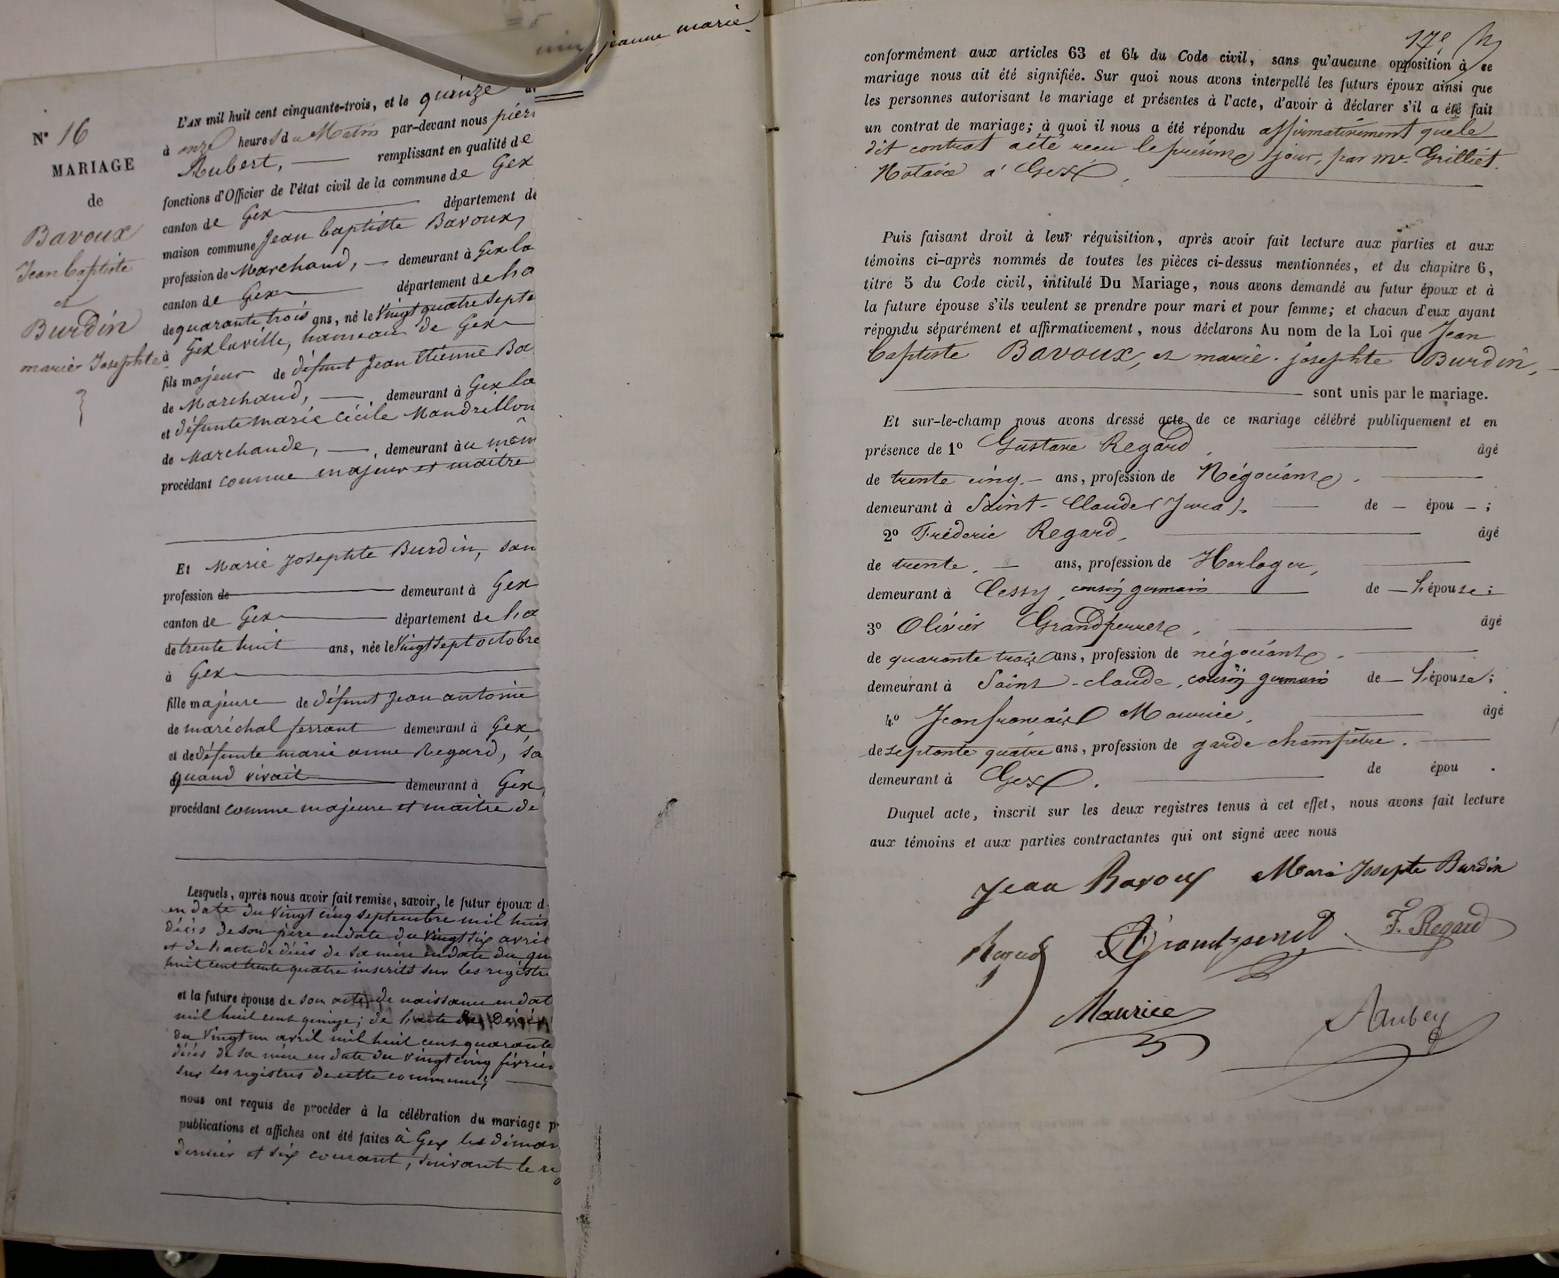 jeanne marie
N° 16
MARIAGE
de
Bavoux
Jean baptiste
et
Burdin
marie Josephte
L'AN mil huit cent cinquante-trois, et le quinze
à onze heures du Matin par-devant nous pierr
Aubert, remplissant en qualité de
fonctions d'Officier de l'état civil de la commune de Gex
canton de Gex département de
maison commune Jean baptiste Bavoux,
profession de Marchand, demeurant à Gex la
canton de Gex département de l'a
de quarante trois ans, né le Vingt quatre septe
à Gex laville, hameau de Gex
fils majeur de défunt Jean Etienne Ba
de Marchand, demeurant à Gex la
et défunte marie Cécile Mandrillon
de Marchande, demeurant au mêm
procédant comme majeur et maitre
Et Marie Josephte Burdin, san
profession de demeurant à Gex
canton de Gex département de l'a
de trente huit ans, née le Vingt sept octobre
à Gex
fille majeure de défunt Jean antoine
de maréchal ferrant demeurant à Gex
et de défunte marie anne Regard, sa
quand vivait demeurant à Gex,
procédant comme majeure et maitre de
Lesquels, après nous avoir fait remise, savoir, le futur époux d
en date du vingt cinq septembre mil huit
décès de son père en date du vingt six avril
et de l'acte de décès de sa mère en date du qu
huit cent trente quatre inscrits sur les registre
et la future épouse de son acte de naissance en dat
mil huit cent quinze; de l'acte de décès
du vingt un avril mil huit cent quarante
décès de sa mère en date du vingt cinq février
sur les registres de cette commune;
nous ont requis de procéder à la célébration du mariage p
publications et affiches ont été faites à Gex les diman
dernier et six courant, suivant le re
17e
conformément aux articles 63 et 64 du Code civil, sans qu'aucune opposition à ce
mariage nous ait été signifiée. Sur quoi nous avons interpellé les futurs époux ainsi que
les personnes autorisant le mariage et présentes à l'acte, d'avoir à déclarer s'il a été fait
un contrat de mariage; à quoi il nous a été répondu affirmativement que le
dit contrat a été recu le présime jour, par me. Grilliet.
Notaire à Gex.
Puis faisant droit à leur réquisition, après avoir fait lecture aux parties et aux
témoins ci-après nommés de toutes les pièces ci-dessus mentionnées, et du chapitre 6,
titre 5 du Code civil, intitulé Du Mariage, nous avons demandé au futur époux et à
la future épouse s'ils veulent se prendre pour mari et pour femme; et chacun d'eux ayant
répondu séparément et affirmativement, nous déclarons Au nom de la Loi que Jean
baptiste Bavoux, et marie josephte Burdin,
sont unis par le mariage.
Et sur-le-champ nous avons dressé acte de ce mariage célébré publiquement et en
présence de 1° Gustave Regard, âgé
de trente cinq ans, profession de Négociant.
demeurant à Saint-Claude (Jura). de épou ;
2° Fréderic Regard, âgé
de trente, ans, profession de Horloger,
demeurant à Cessy, cousin germain de L'épouse;
3° Olivier Grandperret, âgé
de quarante trois ans, profession de négociant.
demeurant à Saint-claude, cousin germain de L'épouse;
4° Jean francois Maurice, âgé
de septante quatre ans, profession de garde champêtre.
demeurant à Gex. de épou .
Duquel acte, inscrit sur les deux registres tenus à cet effet, nous avons fait lecture
aux témoins et aux parties contractantes qui ont signé avec nous
Jean Bavoux Marie Josepte Burdin
Regard Grandperret F. Regard
Maurice Aubert